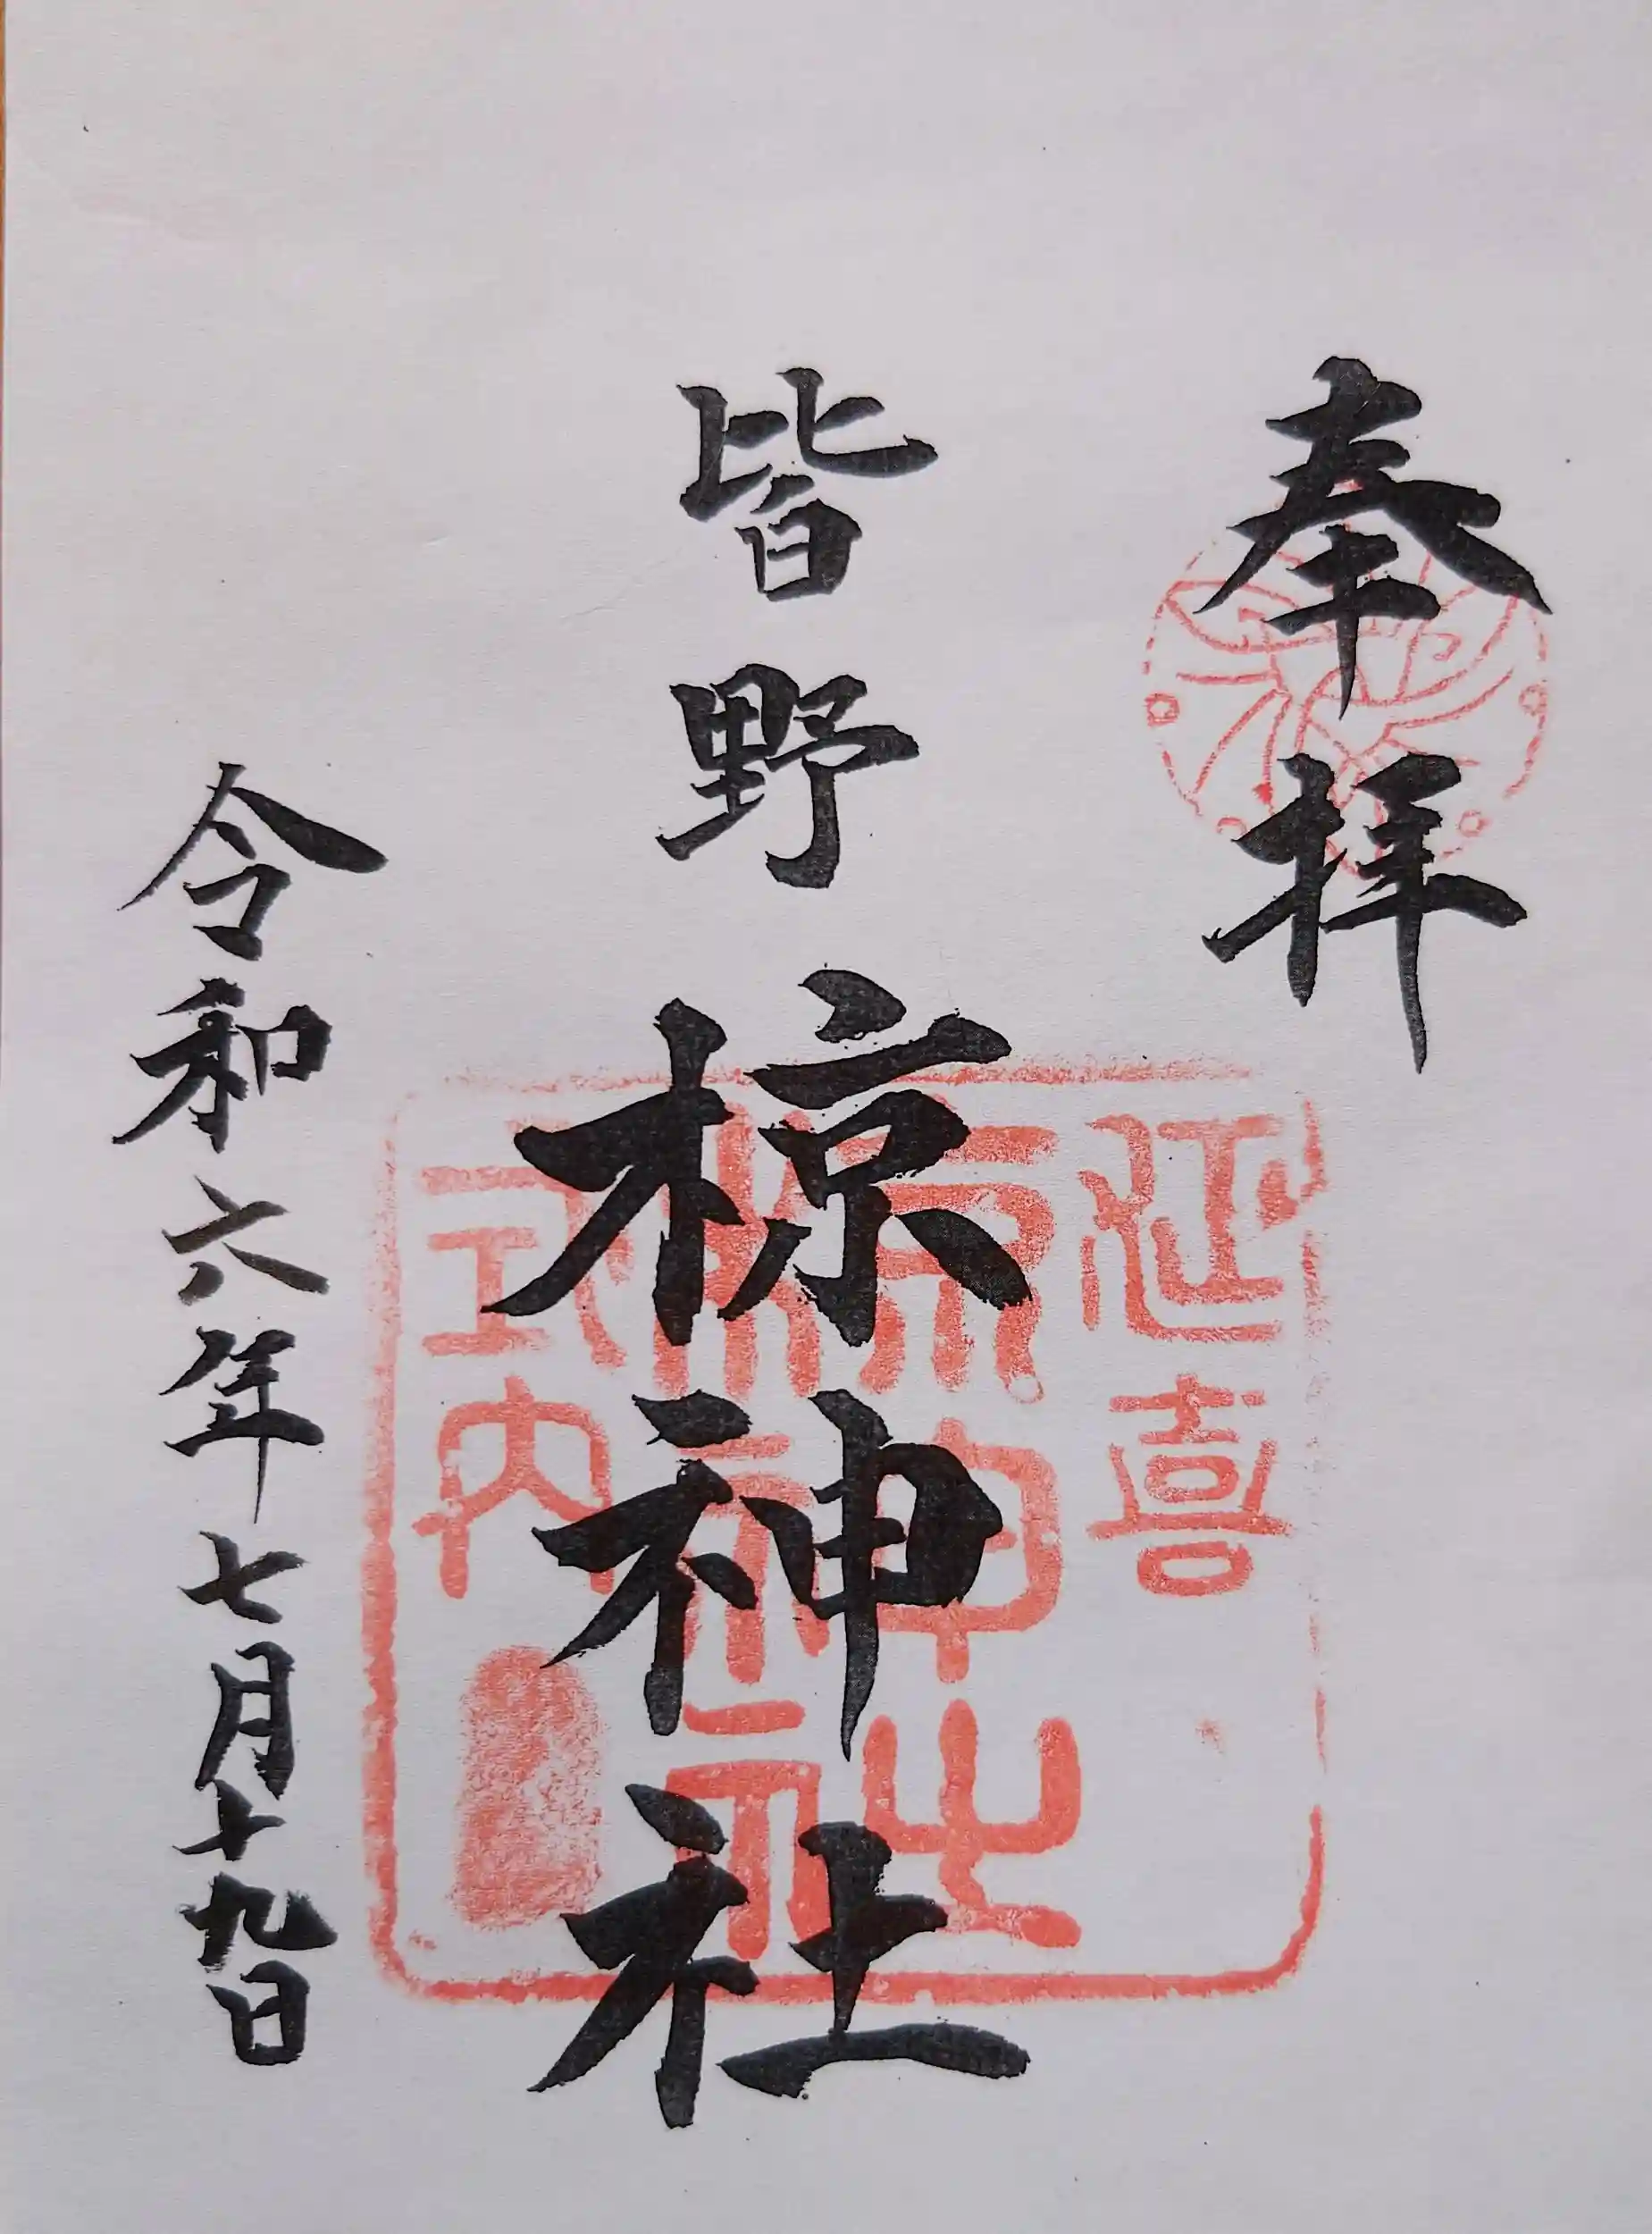 奉拝
皆野
椋神社
令和六年七月十九日
延喜
椋神社
式内